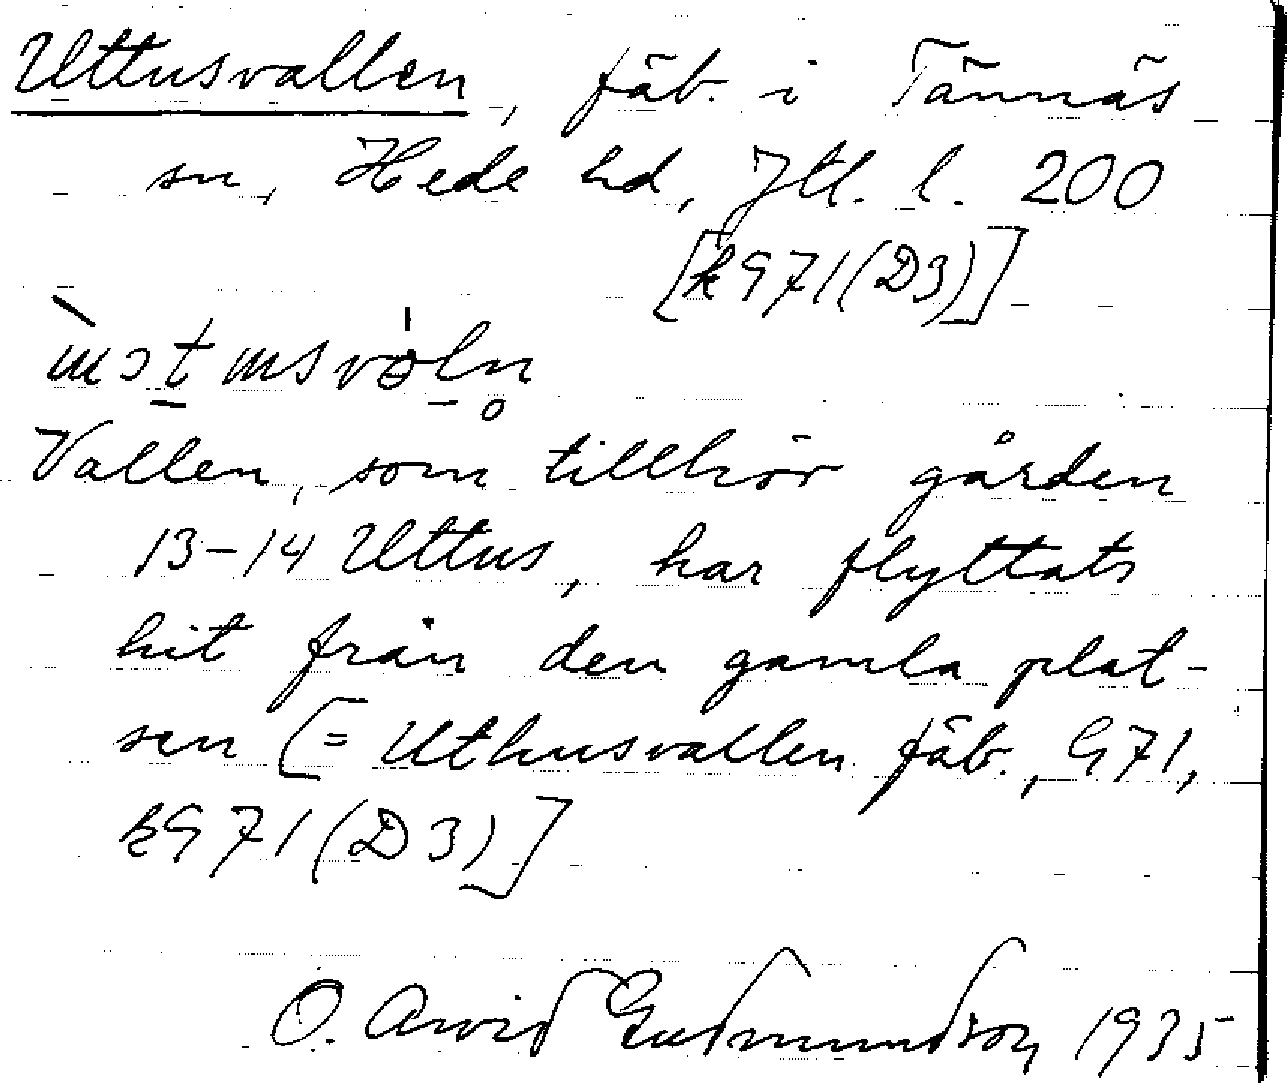 Uttusvallen, fäb. i Tännäs
sn, Hede hd, Jtl. l. 200
[k 971 (D3)]
Vallen, som tillhör gården
13-14 Uttus, har flyttats
hit från den gamla plat-
sen [= Uthusvallen fäb., 971,
k 971 (D3)]
O. Arvid Gudmundson 1935